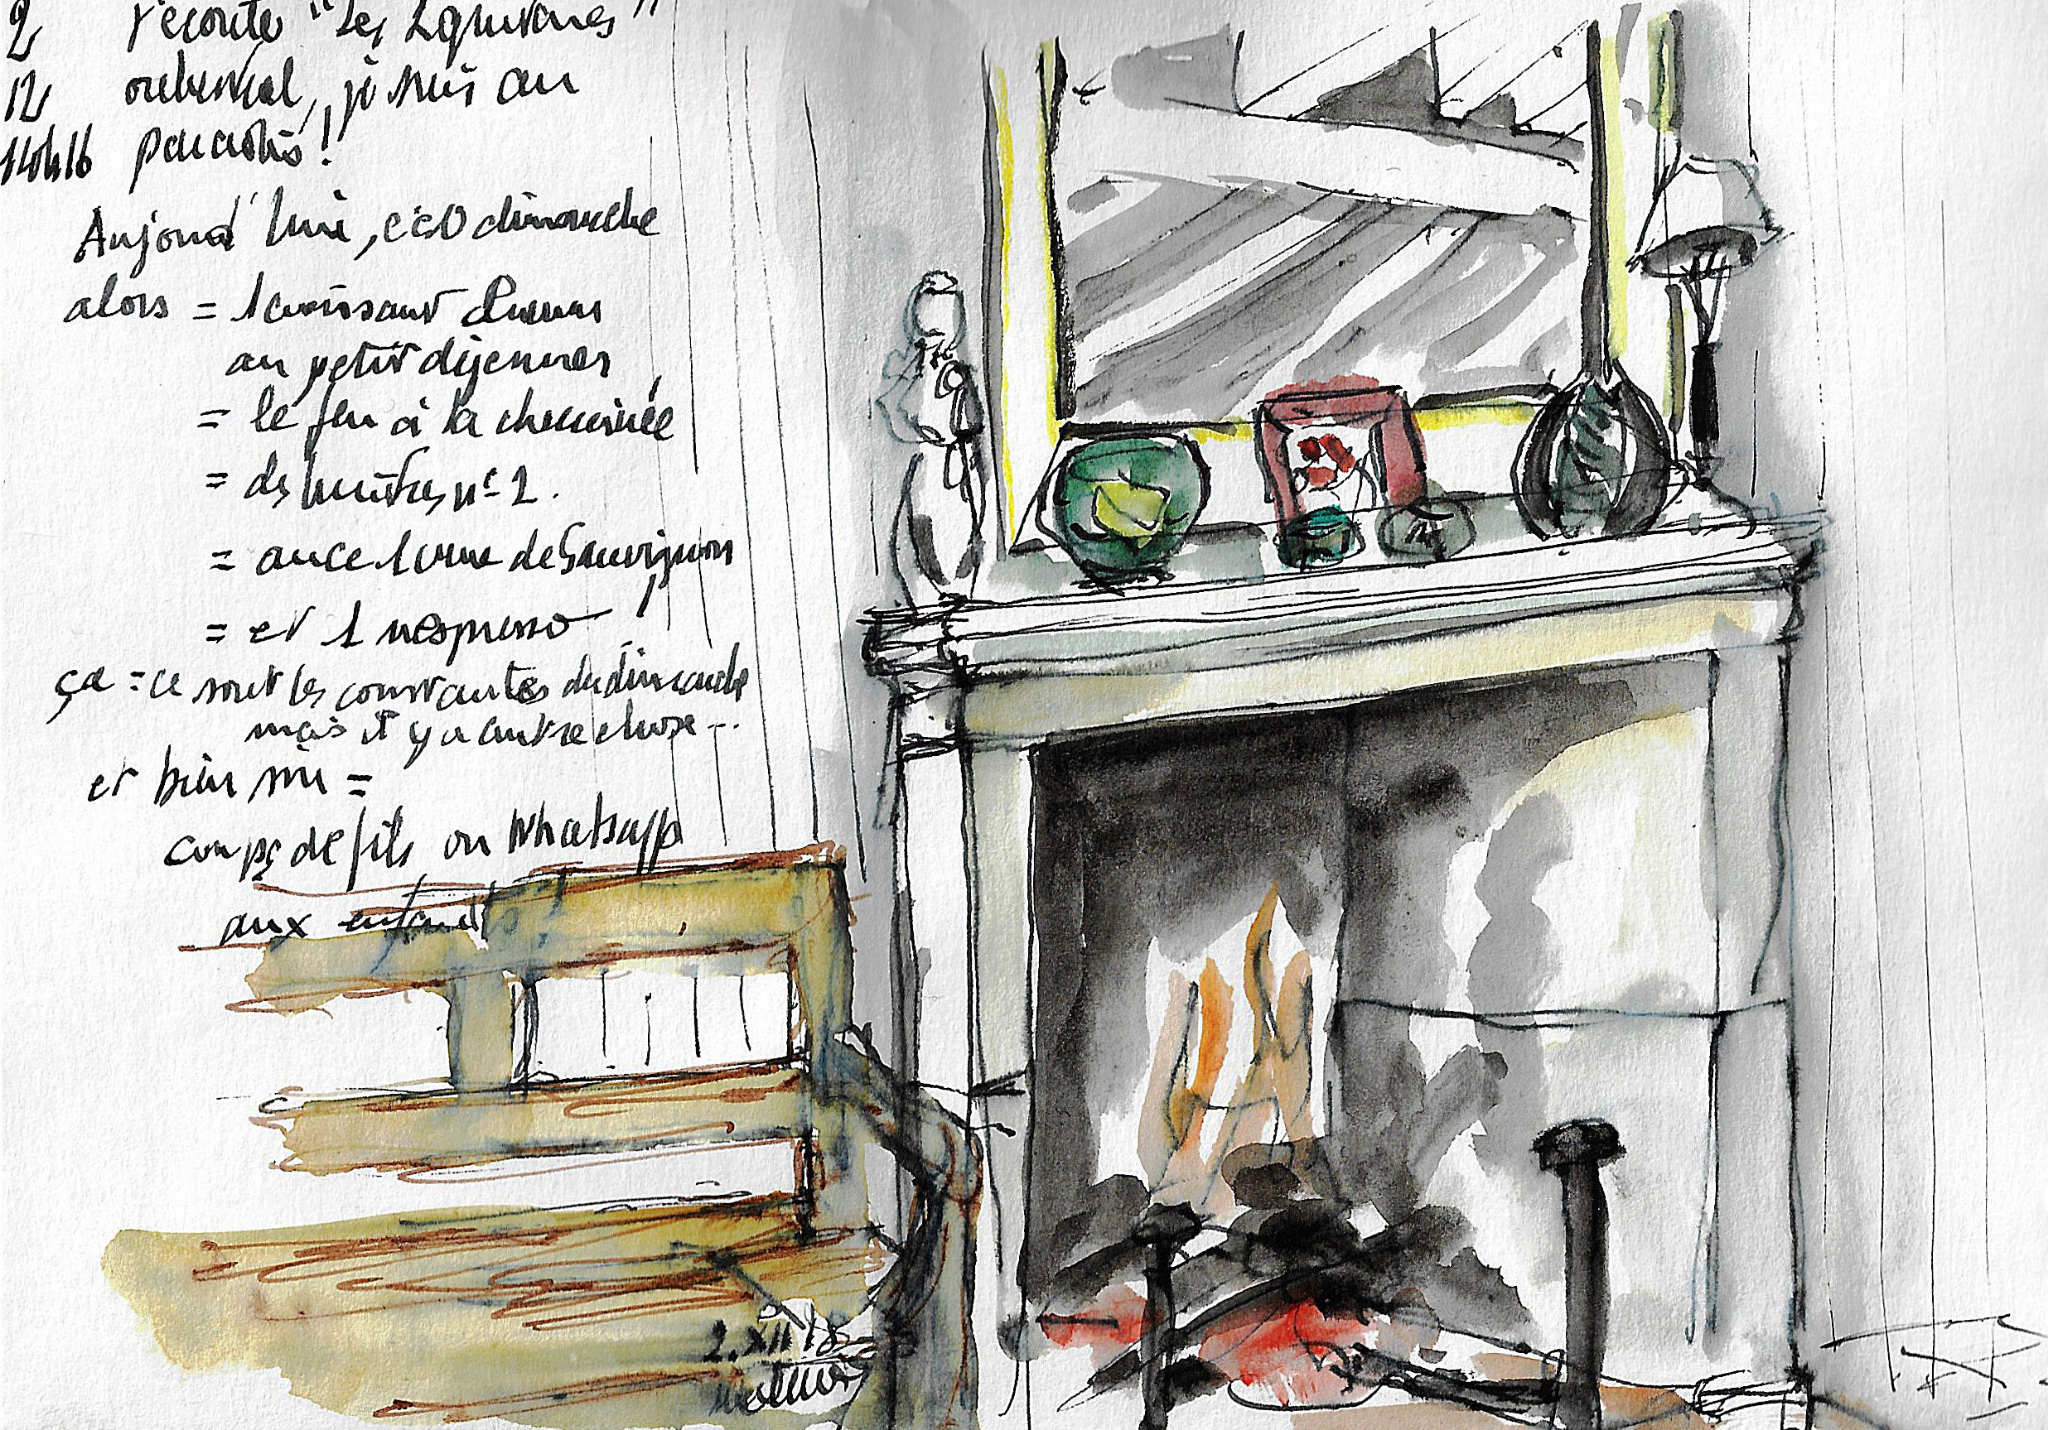 2 J'écoute "Les
12 je suis au
14h16 paradis!
Aujourd'hui, c'est dimanche
alors = 1 croissant
au petit déjeuner
= le feu à la cheminée
= des huitres n° 2.
= avec 1 verre de Sauvignon
= et 1 nespresso!
ça = ce sont les constantes du dimanche
mais il y a autre chose...
et bien sûr =
coups de fils ou Whatsapp
aux enfants
2.XII 18